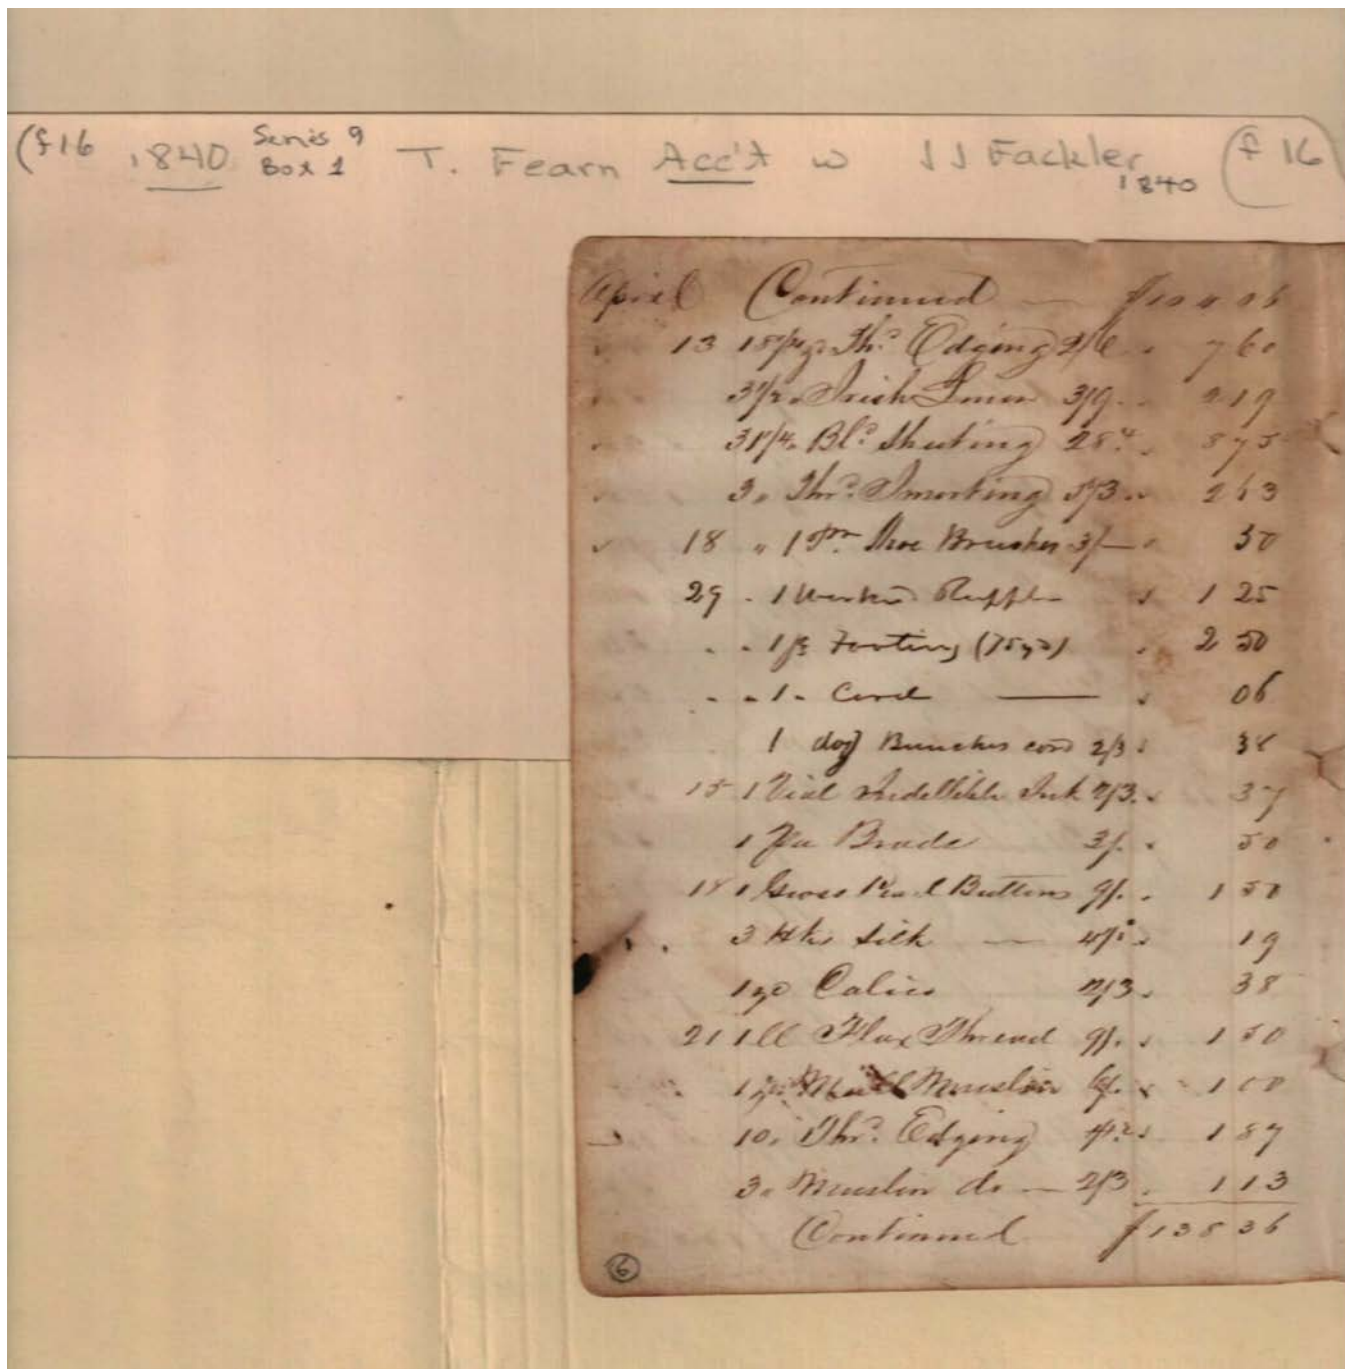 (f16 1840 Series 9 Box 1 T. Fearn Acc't w J J Fackler 1840 (f 16
April Continued — $10
13 18 3/4 yds Thd Edging 2/6 " 7 60
3 1/2 " Irish Linen 3/9 " 2 19
31 1/4 " Bld Sheeting 28cts " 8 75
3 " Thrd Inserting 5/3 " 2 63
18 " 1 Pr Shoe Brushes 3/— " 50
29 " 1 Worked Ruffle " 1 25
" " 1 ps Footing (15 yds) " 2 50
" " 1 " Cord — " 06
1 doz Bunches cord 2/3 " 38
15 1 Vial Indellible Ink 2/3 " 37
1 Brade 3/. " 50
18 1 Groce Pearl Buttons 9/. " 1 50
3 Hks Silk — 4½ " 19
1 yd Calico 2/3 " 38
21 1 ll Flax Thread 9/. " 1 50
1 yd Mull Muslin 6/. " 1 00
10 " Thrd Edging " 1 87
3 " Muslin do — 2/3 " 1 13
Continued $138 36
6